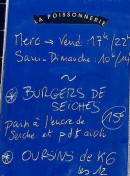 LA POISSONNERIE
Merc → Vend: 17h/22h
Sam-Dimanche: 10h/14h
~
* BURGERS DE
SEICHES
pain à l'encre de
Seiche et pdt aioli
15€
* OURSINS de KG
les 12